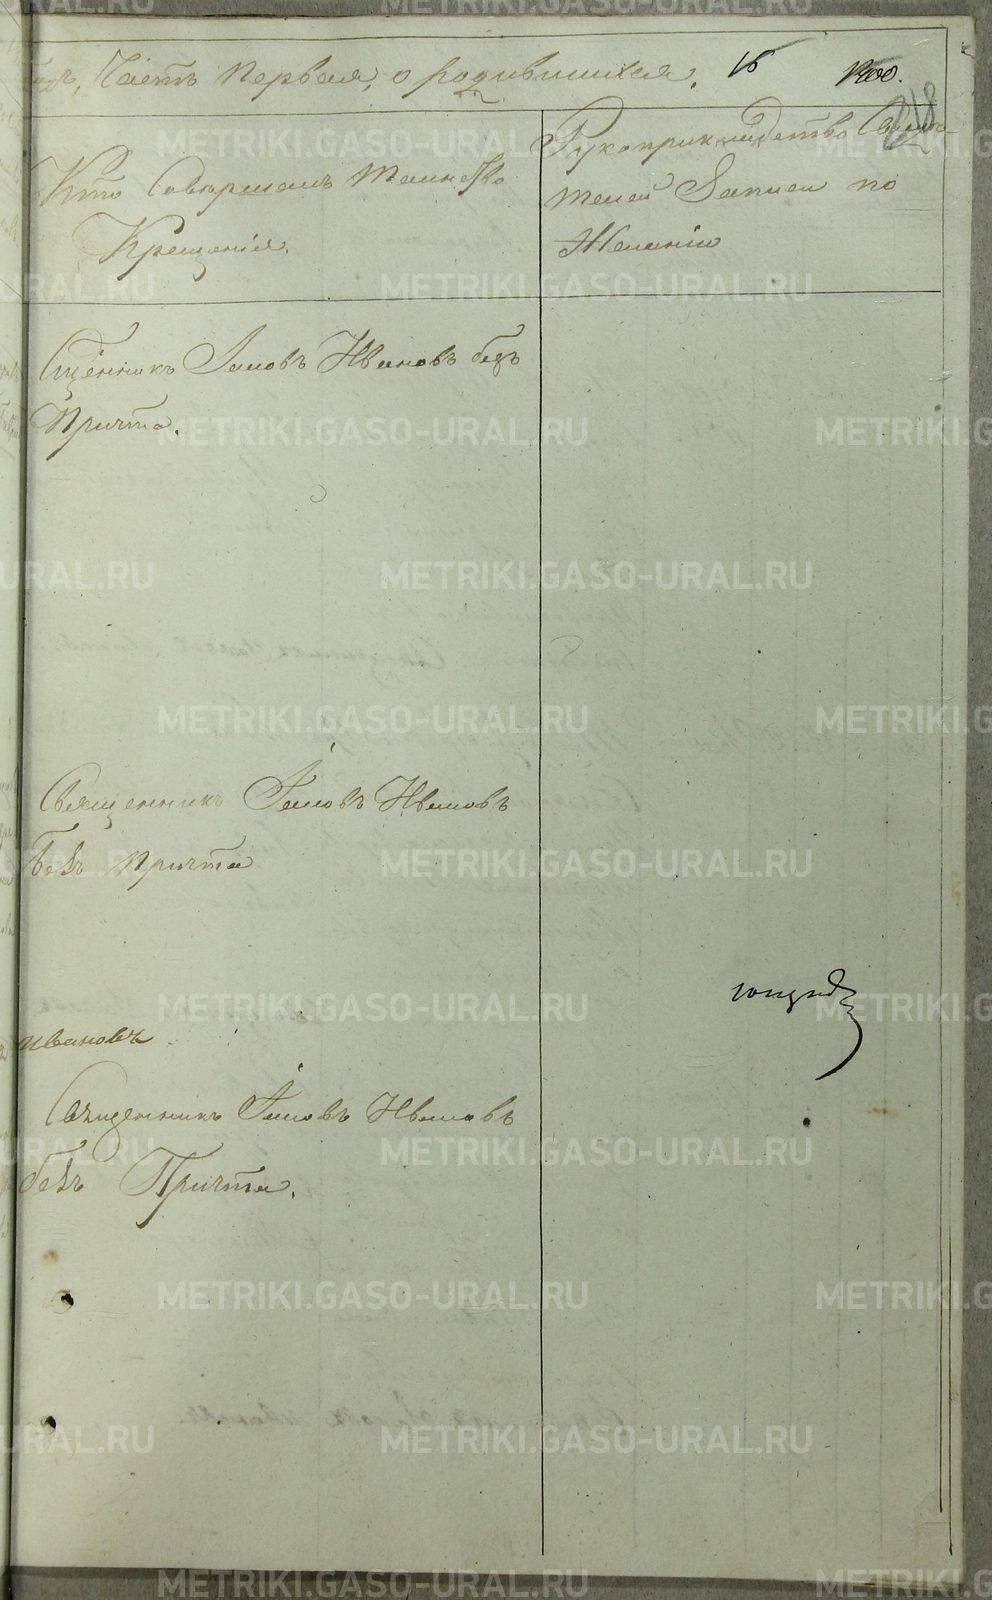 годъ, Часть Первая, о родившихся.
16
218
Кто Совершалъ Таинство
Крещенія.
Рукоприкладство Свидѣ-
телей Записи по
Желанію
Сщенникъ Іаковъ Ивановъ безъ
Причта.
Священникъ Іаковъ Ивановъ
безъ Причта
Ивановъ
Священникъ Іаковъ Ивановъ
безъ Причта.
METRIKI.GASO-URAL.RU